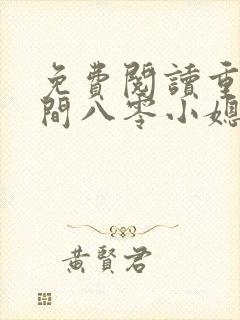 免費閱讀重
間八零小媳
黃賢君